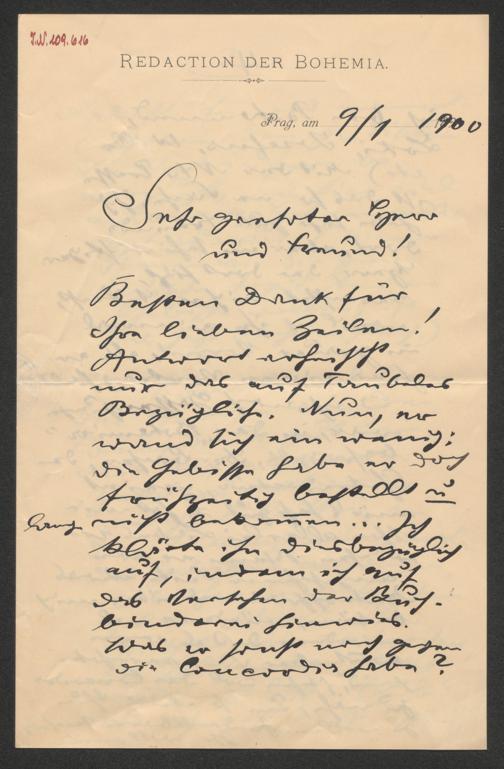 J.N. 109.616
REDACTION DER BOHEMIA.
Prag, am 9/1 1900
Sehr geehrter Herr
und Freund!
Besten Dank für
Ihre lieben Zeilen!
Antwort erheischt
nur das auf Taubeles
Bezügliche. Nun, er
wand sich ein wenig:
die Gebisse habe er doch
frühzeitig bestellt u
lange nicht bekommen... Ich
klärte ihn diesbezüglich
auf, indem ich auf
das Versehen der Buch-
binderei hinwies.
Was er sonst noch gegen
die Concordia habe?